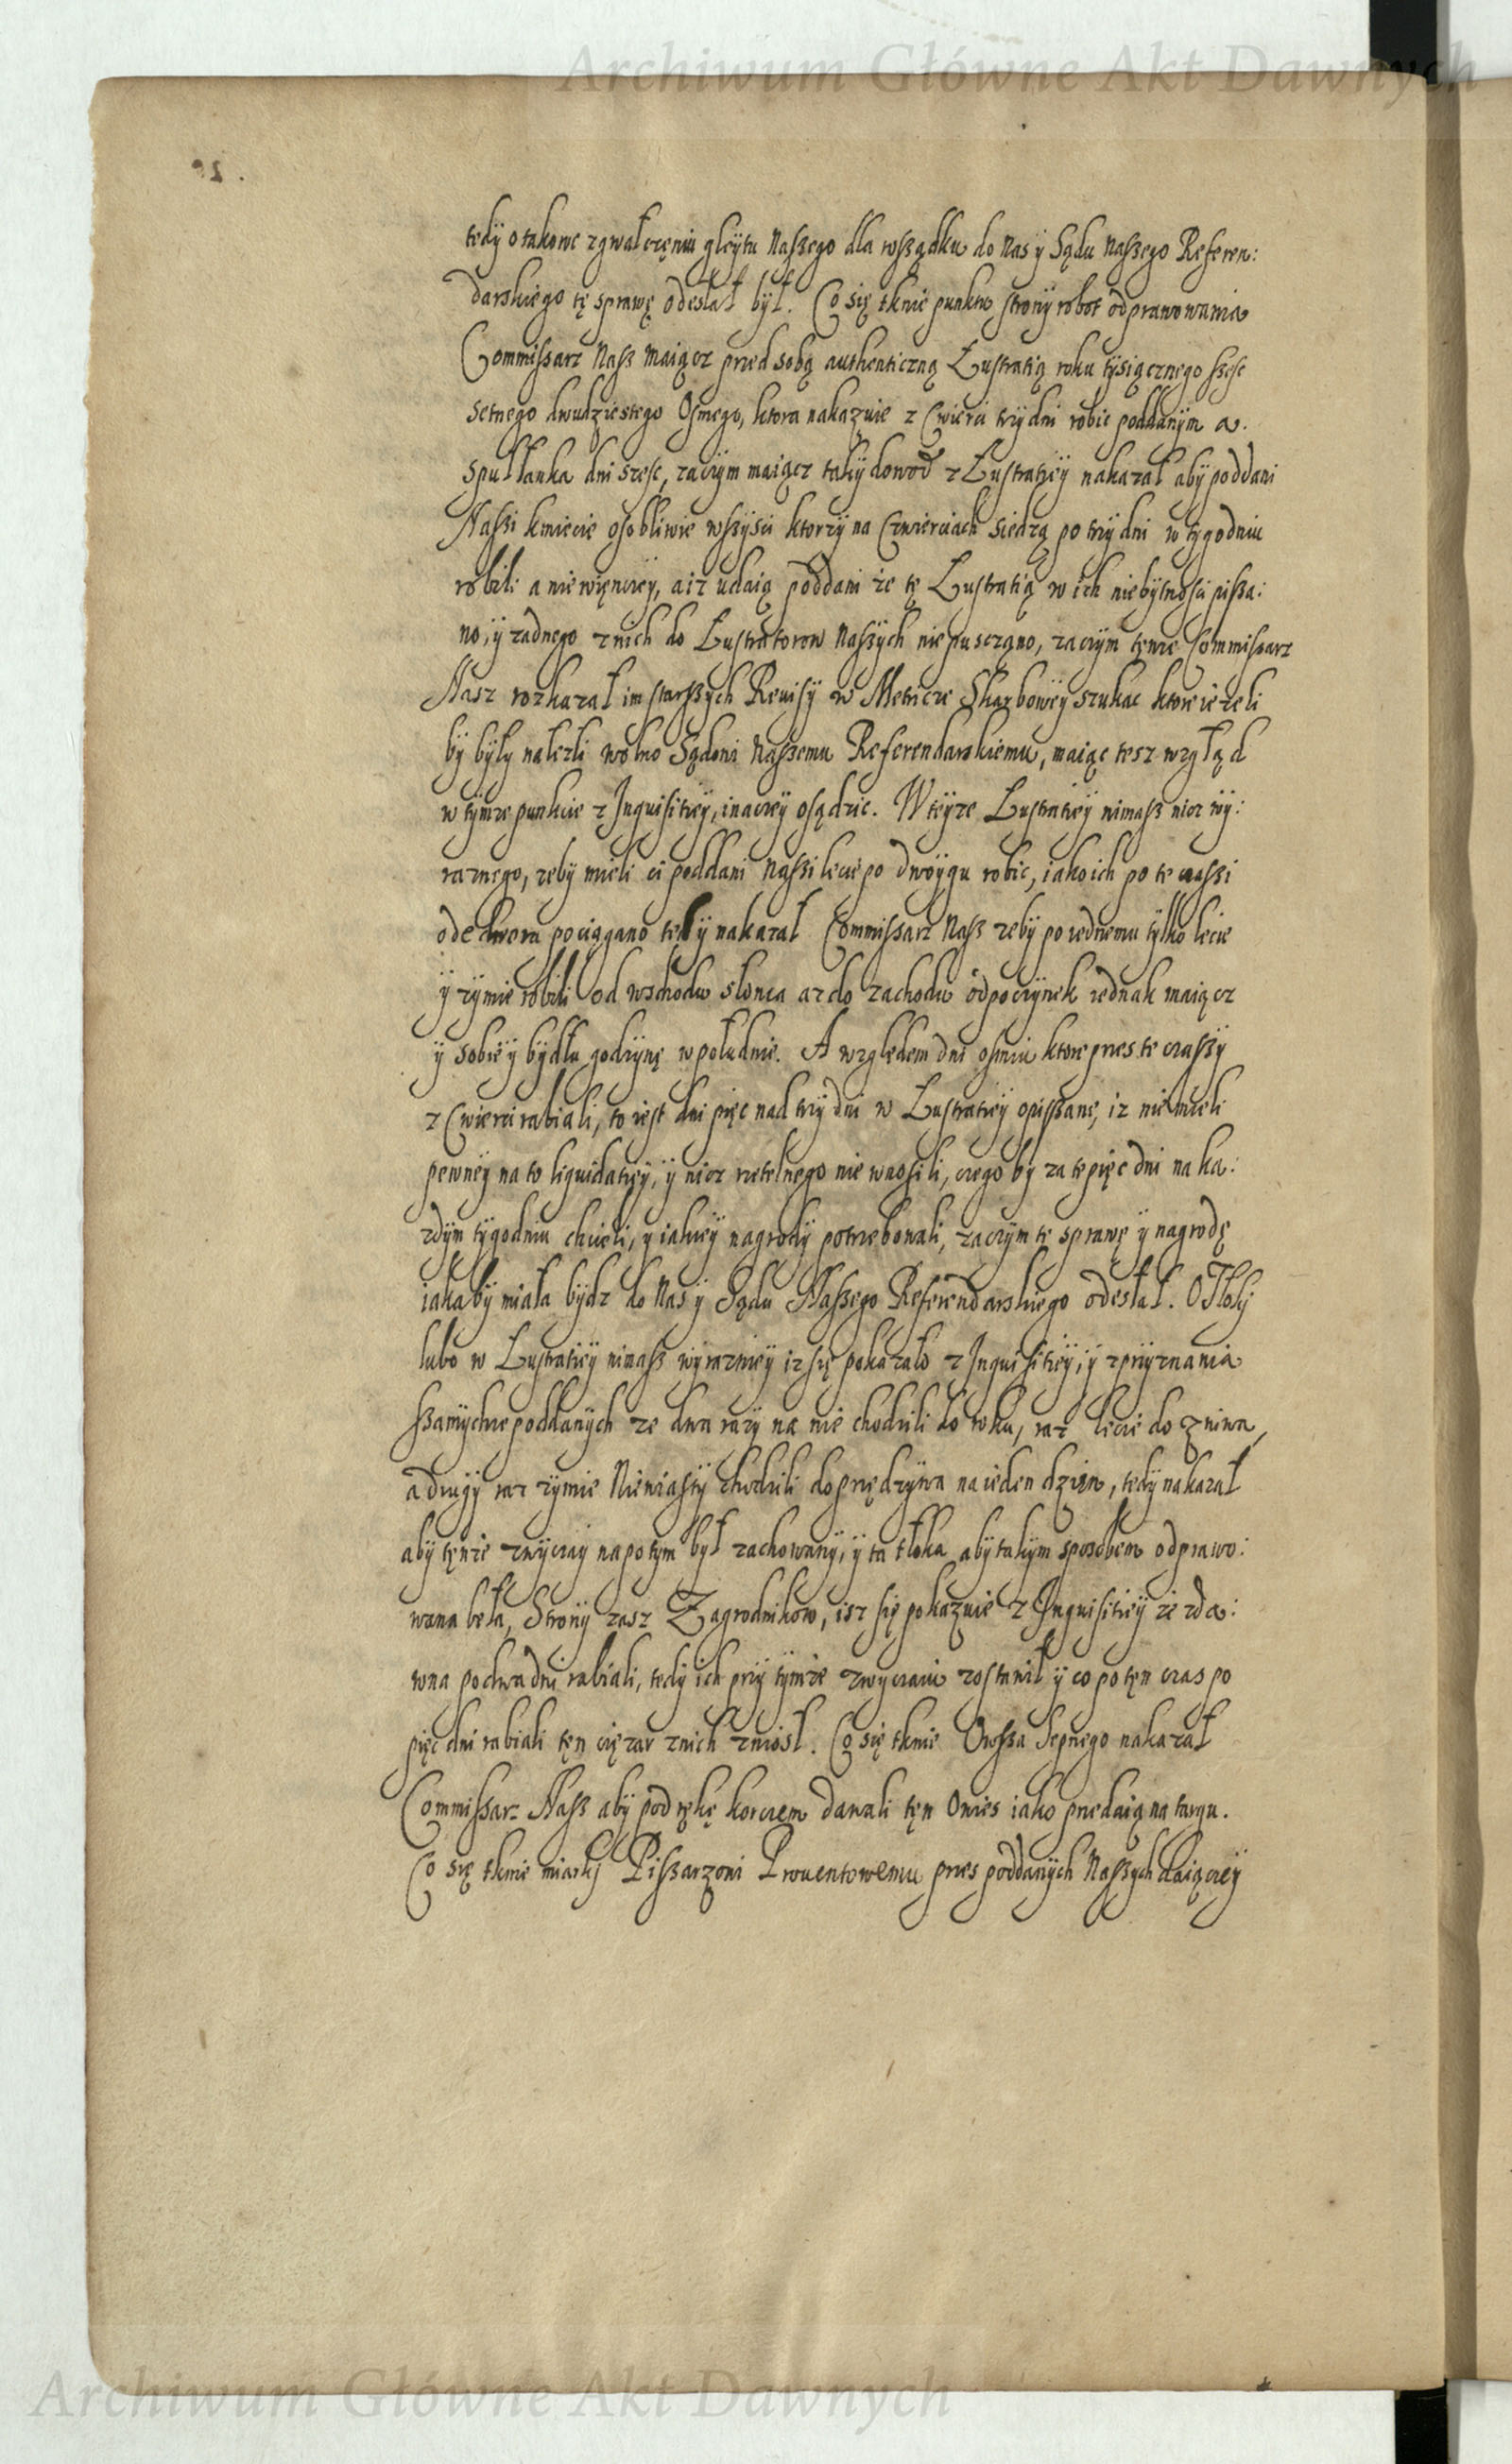 Archiwum Główne Akt Dawnych
tedÿ o takowe zgwałczęniu gleÿtu Naszego dla rosządku do Nas ÿ Sądu Naszego Referen:
darskiego tę sprawę odesłał bÿł. Co się tknie punktu stronÿ robot odprawowania
Commissarz Nasz maiącz przed sobą authenticzną Lustratią roku tÿsiącznego szesc
setnego dwudziestego Osmego, ktora nakazuie z Cwierci trzÿ dni robic poddanÿm a.
s pułłanka dni szesc, zaczÿm maiącz takÿ dowod z Lustratieÿ nakazał abÿ poddani
Naszi kmiecie osobliwie wszÿsci ktorzÿ na Czwierciach siedzą po trzÿ dni w tÿgodniu
robili a nie więnceÿ, a iż udaią poddani że tę Lustratią w ich niebÿtnosci pissa:
no, ÿ zadnego z nich do Lustratorow Naszÿch nie pusczano, zaczÿm tęnze Commissarz
Nasz rozkazał im starszÿch Reuisÿ w Metrice Skarboweÿ szukac ktore iezeli
bÿ bÿłÿ nalezli wolno Sądoni Naszemu Referendarskiemu, maiąc tesz wzgłąd
w tÿmze punkcie z Inquisitieÿ, inaczeÿ osądzic. W teÿze Lustratieÿ nimasz nicz wÿ:
raznego, zebÿ mieli ci poddani Naszi lecie po dwoÿgu robic, iako ich po te czassi
ode dwora pociągano tedÿ nakazał Commissarz Nasz zebÿ po iednemu tÿlko lecie
ÿ zÿmie robili od wschodu słonca az do zachodu odpoczÿnek iednak maiącz
ÿ sobie ÿ bÿdłu godzÿnę w południe. A wzgłędem dni osmiu ktore przes te czassÿ
z Cwierci rabiali, to iest dni pięc nad trzÿ dni w Lustratieÿ opissane, iz nie mieli
pewneÿ na to liquidatieÿ, ÿ nicz rzetelnego nie wnosili, czego bÿ za te pięc dni na ka:
zdÿm tÿgodniu chcieli, ÿ iakieÿ nagrodÿ potrzebowali, zaczÿm te sprawę ÿ nagrodę
iaka bÿ miała bÿdz do Nas ÿ Sądu Naszego Referendarskiego odesłał. O Tłokÿ
lubo w Lustratieÿ nimasz wÿrazniеÿ iz się pokazało z Inquisitieÿ, ÿ z przÿznania
szamÿchze poddanÿch ze dwa razÿ na nie chodzili do roku, raz lecie do zniwa,
a drugÿ raz zÿmie Niewiastÿ chodzili do przędzÿwa na ieden dzien, tedÿ nakazał
abÿ tęnze zwÿczaÿ napotÿm bÿł zachowanÿ, ÿ ta tłoka abÿ takÿm sposobem odprawo:
wana beła, Stronÿ zasz Zagrodnikow, isz się pokazuie z Inquisitieÿ ze zda:
wna po dwa dni rabiali, tedÿ ich przÿ tÿmze zwÿczaiu zostawił ÿ co po tęn czas po
pięc dni rabiali tęn ciężar z nich zniosł. Co się tknie Owssa Sepnego nakazał
Commissarz Nasz abÿ pod rękę korczem dawali tęn Owies iako przedaią na targu.
Co się tknie miarkÿ Pissarzoni Prouentowemu przes poddanÿch Naszÿch daiączeÿ
Archiwum Główne Akt Dawnych